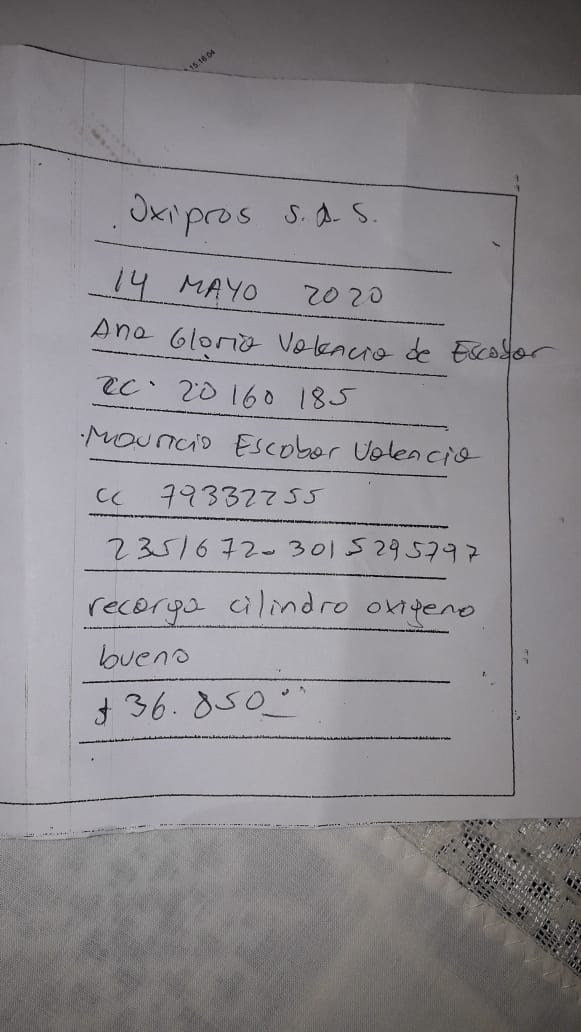 15:16:04
Oxipros S.A.S.
14 MAYO 2020
Ana Gloria Valencia de Escobar
CC. 20160185
Mauricio Escobar Valencia
cc 79332255
2351672-3015295797
recarga cilindro oxigeno
bueno
$ 36.850